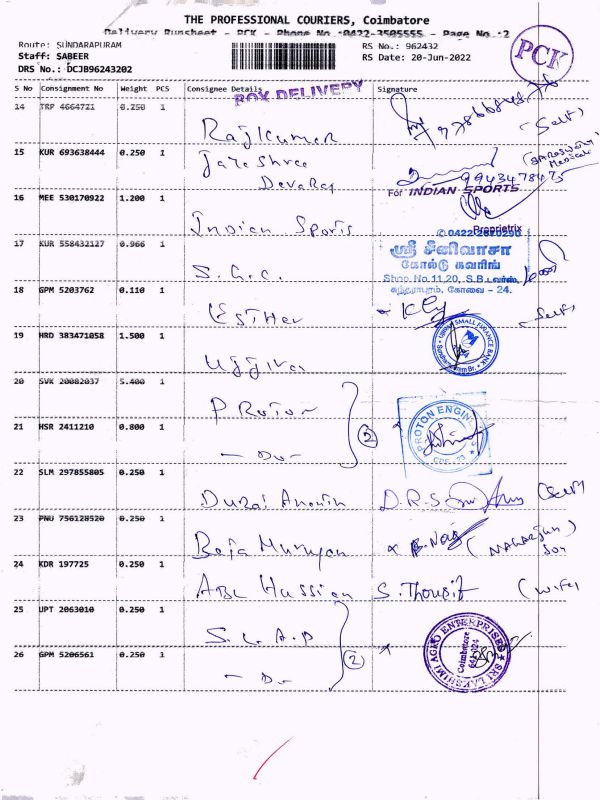 THE PROFESSIONAL COURIERS, Coimbatore
Delivery Runsheet - PCK - Phone No :0422-3505555 - Page No :2
Route: SUNDARAPURAM
Staff: SABEER
DRS No.: DCJB96243202
RS No.: 962432
RS Date: 20-Jun-2022
PCK
S No Consignment No Weight PCS Consignee Details Signature
BOX DELIVERY
14 TRP 4664721 0.250 1 Rajkumar (Self)
15 KUR 693638444 0.250 1 Jaieshree
Devaraj
9943478475
16 MEE 530170922 1.200 1 Indian Sports
For INDIAN SPORTS
Proprietrix
17 KUR 558432127 0.966 1 S.G.C.
ஸ்ரீ சீனிவாசா
கோல்டு கவரிங்
Shop. No.11,20, S.B.டவர்ஸ்,
சுந்தராபுரம், கோவை - 24.
18 GPM 5203762 0.110 1 Esther (Self)
19 HRD 383471058 1.500 1 Ujjivan
SMALL FINANCE BANK
20 SVK 20082037 5.400 1 Proton
21 HSR 2411210 0.800 1 - Do - 2
PROTON ENGINEERS
22 SLM 297855805 0.250 1 Durai Ananth D.R.S (Self)
23 PNU 756128520 0.250 1 Baja Murugan (Nagarjun)
Son
24 KDR 197725 0.250 1 ABL Hussian S. Thousif (Wife)
25 UPT 2063010 0.250 1 S.L.A.P
26 GPM 5206561 0.250 1 - Do - 2
SRI LAKSHMI AGRO ENTERPRISES
Coimbatore
641 024